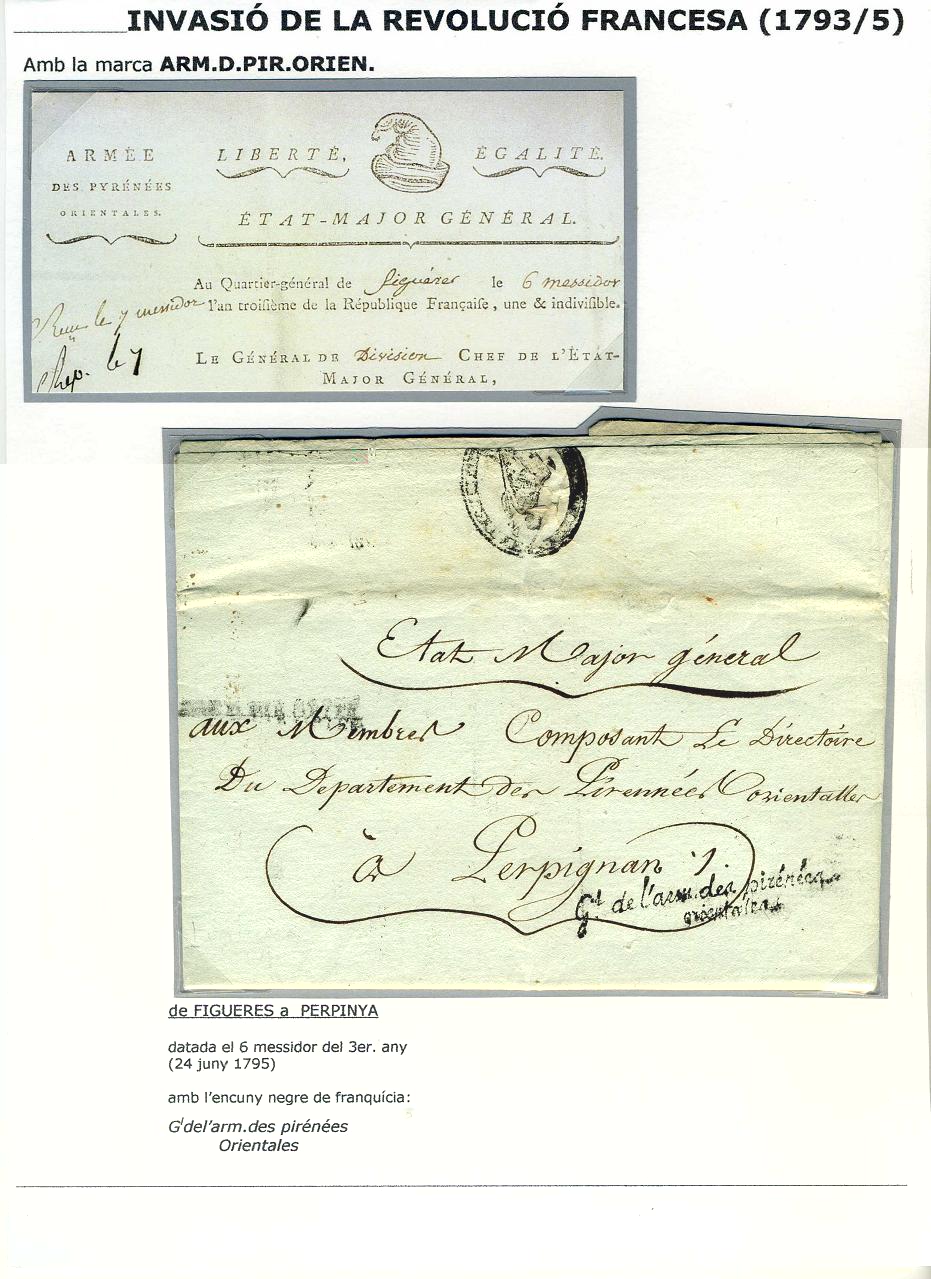 INVASIÓ DE LA REVOLUCIÓ FRANCESA (1793/5)
Amb la marca ARM.D.PIR.ORIEN.
ARMÉE
DES PYRÉNÉES
ORIENTALES.
LIBERTÉ, ÉGALITÉ.
ÉTAT-MAJOR GÉNÉRAL.
Au Quartier-général de figuéres le 6 messidor
l'an troisième de la République Française, une & indivisible.
Reçu le 7 messidor
Rep. le 7
LE GÉNÉRAL DE Division CHEF DE L'ÉTAT-
MAJOR GÉNÉRAL,
Etat Major général
aux Membres Composant Le Directoire
Du Departement des Pirennées orientalles
à Perpignan
Gl de l'arm. des pirénées
orientales
de FIGUERES a PERPINYA
datada el 6 messidor del 3er. any
(24 juny 1795)
amb l'encuny negre de franquícia:
Gl del'arm.des pirénées
Orientales